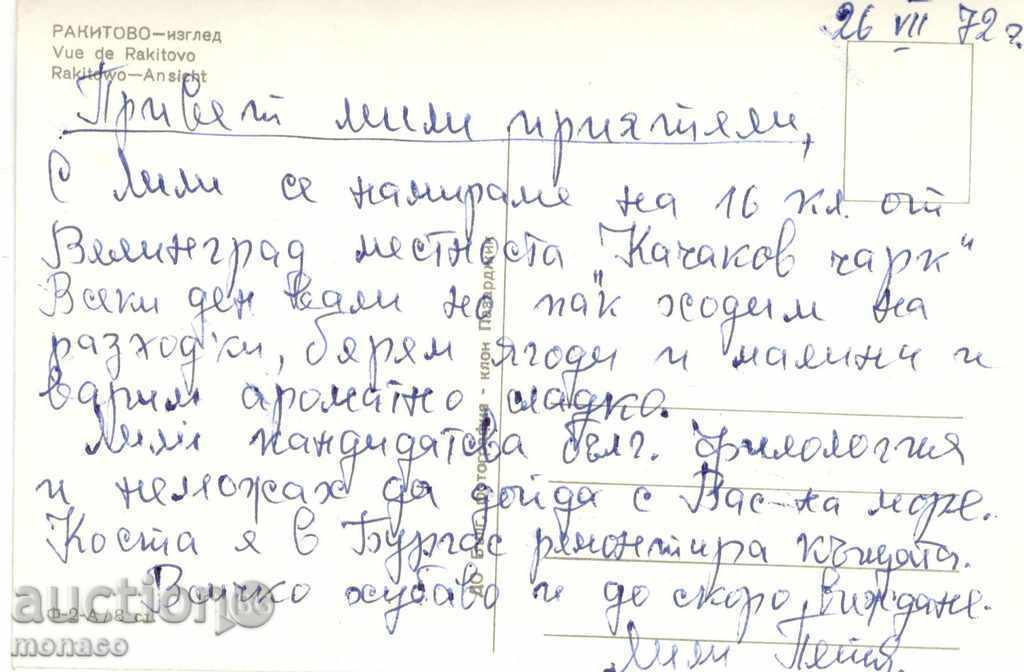 26 VII 72 г.
РАКИТОВО—изглед
Vue de Rakitovo
Rakitowo—Ansicht
Привет мили приятели,
С Лили се намираме на 16 кл. от
Велинград местноста "Качаков чарк"
Всеки ден вали но пак ходим на
разходки, берем ягоди и малини и
варим ароматно сладко.
Лили кандидатсва бълг. филология
и неможах да дойда с Вас на море.
Коста я в Бургас ремонтира къщата.
Всичко хубаво и до скоро виждане.
Лили Петя
ДП Бълг. фотография - клон Пазарджик
Ф-2-А/8 ст
auction.bg
monaco